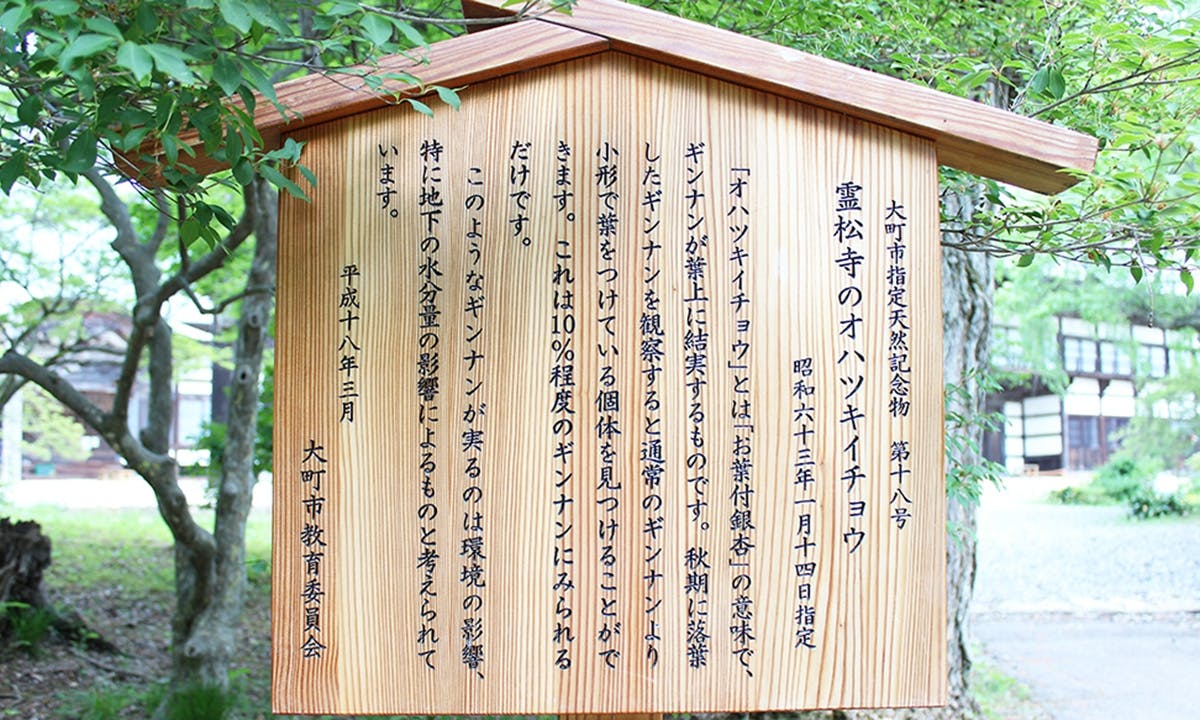 大町市指定天然記念物　第十八号
霊松寺のオハツキイチョウ
昭和六十三年一月十四日指定
「オハツキイチョウ」とは「お葉付銀杏」の意味で、
ギンナンが葉上に結実するものです。秋期に落葉
したギンナンを観察すると通常のギンナンより
小形で葉をつけている個体を見つけることがで
きます。これは10%程度のギンナンにみられる
だけです。
このようなギンナンが実るのは環境の影響、
特に地下の水分量の影響によるものと考えられて
います。
平成十八年三月
大町市教育委員会